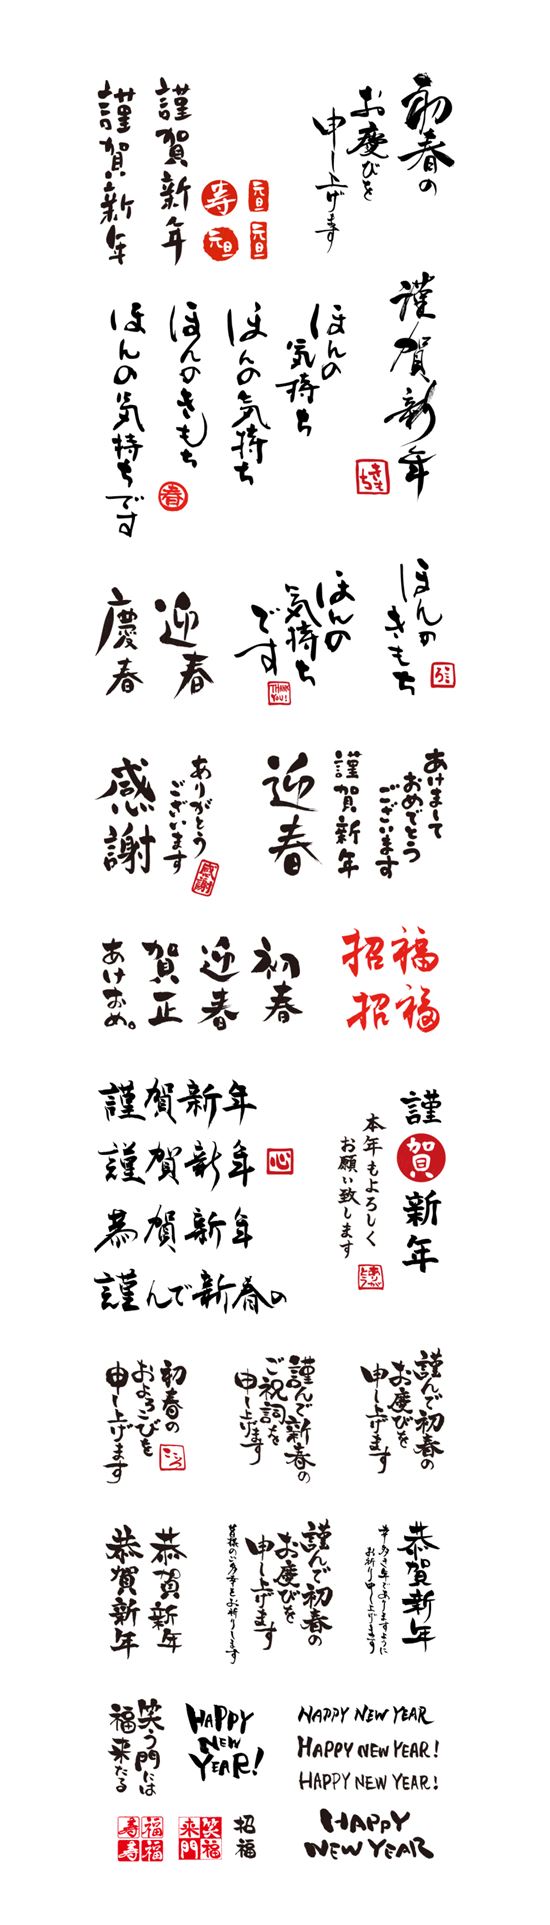 初春の
お慶びを
申し上げます
謹賀新年
謹賀新年
寿
元旦
元旦
元旦
謹賀新年
きもち
ほんの
気持ち
ほんの気持ち
ほんのきもち
春
ほんの気持ちです
ほんのきもち
こころ
ほんの
気持ち
です
THANK
YOU!
迎春
慶春
あけまして
おめでとう
ございます
謹賀新年
迎春
ありがとう
ございます
感謝
感謝
招福
招福
初春
迎春
賀正
あけおめ。
謹賀新年
謹賀新年
心
恭賀新年
謹んで新春の
謹賀新年
本年もよろしく
お願い致します
ありがとう
謹んで初春の
お慶びを
申し上げます
謹んで新春の
ご祝詞を
申し上げます
初春の
およろこびを
申し上げます
恭賀新年
幸多き年でありますように
お祈り申し上げます
謹んで初春の
お慶びを
申し上げます
皆様のご多幸をお祈りします
恭賀新年
恭賀新年
笑う門には
福来たる
HAPPY
NEW
YEAR!
HAPPY NEW YEAR
HAPPY NEW YEAR!
HAPPY NEW YEAR!
HAPPY
NEW YEAR
福福
寿寿
笑福
来門
招福